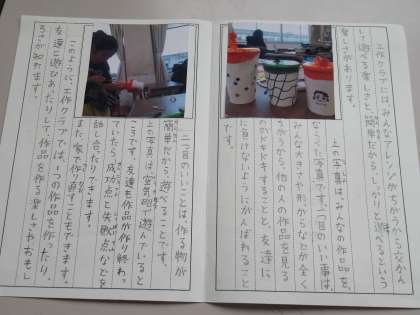 工作クラブには、みんなアレンジがちがうから交かん
して遊べる楽しさと、簡単だから、しっかりと遊べるという
楽しさがあります。
上の写真は、みんなの作品を、
ならべた写真です。一つ目のいい事は、
みんな大きさや形、からなどが全く
ちがうから、他の人の作品を見る
のがドキドキすることと、友達に
に負けないようにがんばれること
です。
二つ目のいいことは、作る物が
簡単だから、遊べることです。
上の写真は空気砲で遊んでいると
ころです。友達も作品が作り終わっ
ていたら成功点と失敗点などを
話し合たりできます。
また、家で作り直すこともできます。
このように、工作クラブでは、1つの作品を作ったり、
友達と遊びあったりして、作品を作る楽しさやおもし
ろさが知れます。